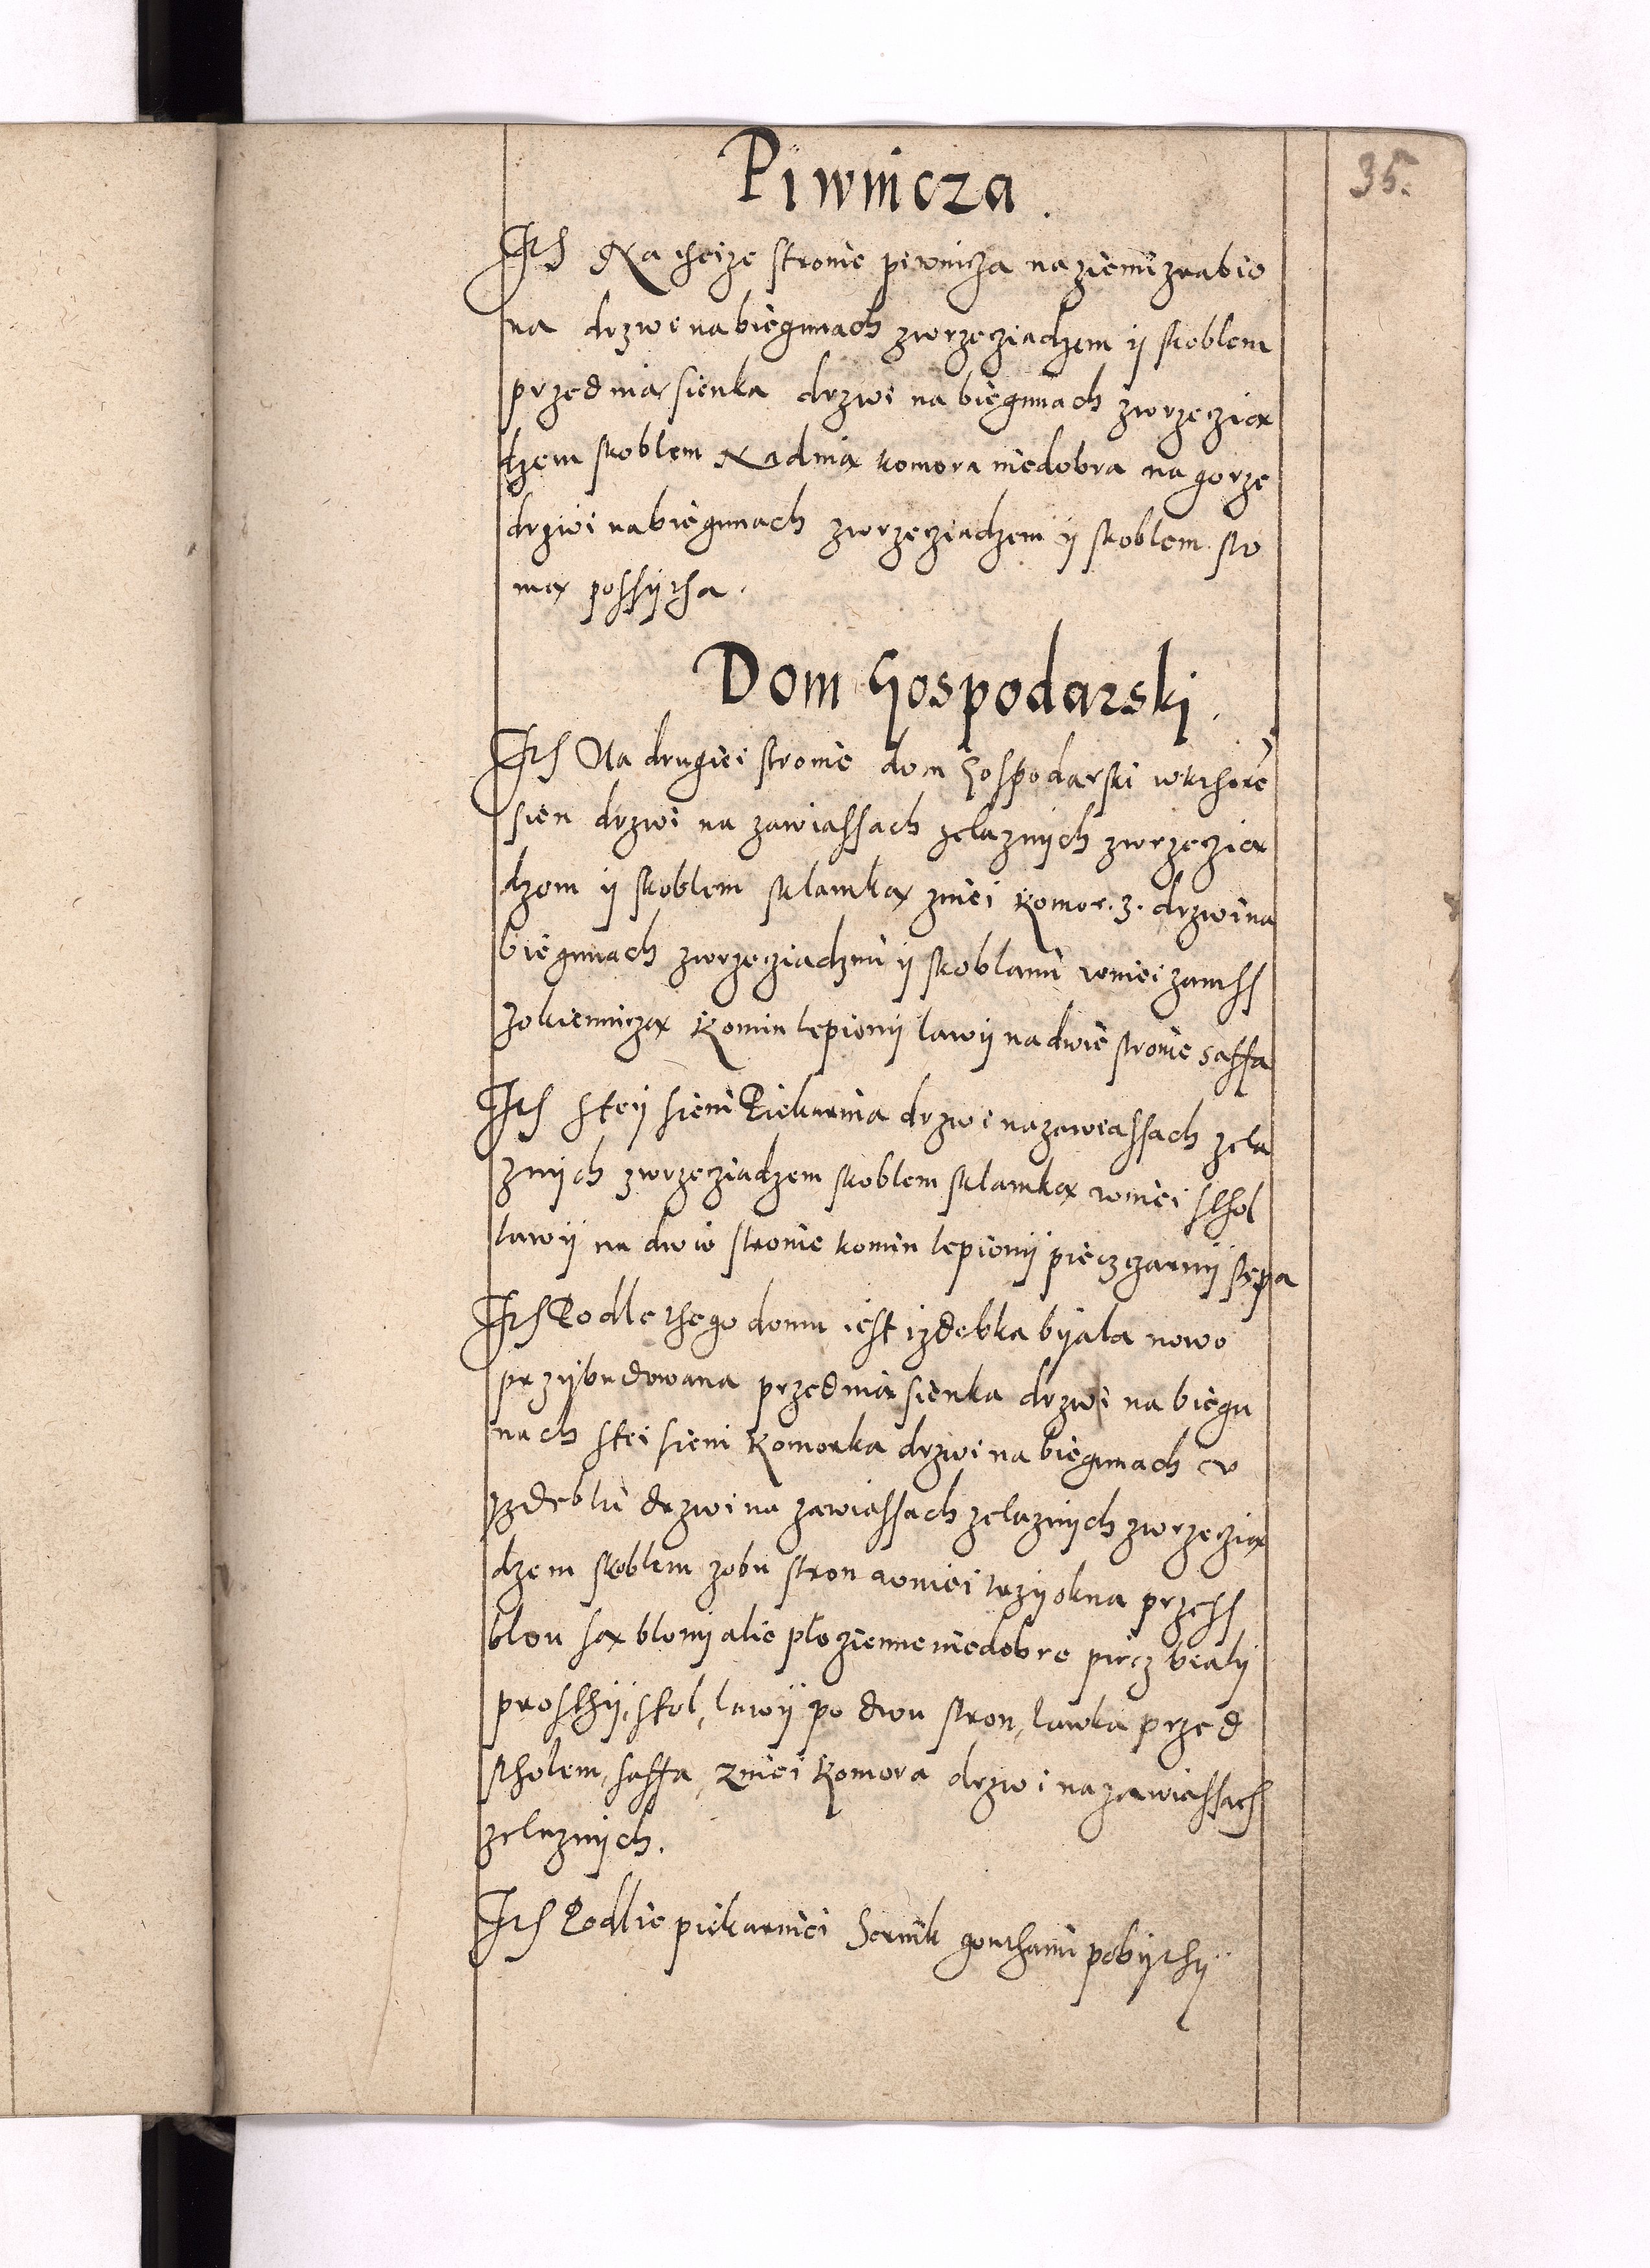 35.
Piwnicza.
Its Na theize stronie piwnicza na ziemi zrabio
na drzwi na biegunach zwrzecziadzem ÿ skoblem
przed nią sienka drzwi na biegunach zwrzeczią
dzem skoblem Nad nią komora niedobra na gorze
drzwi na biegunach zwrzecziadzem ÿ skoblem sło
mą possÿtha.
Dom Gospodarski.
Its Na drugiei stronie dom Gospodarski wkthore
sien drzwi na zawiassach zelaznÿch zwrzeczią
dzem ÿ skoblem sklamką zniei komor .3. drzwi na
biegunach zwrzecziadzmi ÿ skoblami wniei
zokienniczą Komin lepionÿ lawÿ na dwie stronie saffa
Its steÿ sieni Piekarnia drzwi na zawiassach zela
znÿch zwrzecziadzem skoblem sklamką wniei sthol
lawÿ na dwie stronie komin lepionÿ piecz czarnÿ stępa
Its Podle thego domu iest izdebka bÿala nowo
przÿbudowana przed nią sienka drzwi na biegu
nach stei sieni Komorka drzwi na biegunach v
Izdebki drzwi na zawiassach zelaznÿch zwrzeczią
dzem skoblem zobu stron wniei trzÿ okna przess
blon są blonÿ alie płozienne niedobre piecz bialÿ
prosthÿ, stol, lawÿ po dwu stron, lawka przed
stholem, saffa, zniei Komora drzwi na zawiassach
zelaznÿch.
Its Podlie piekarniei Sernik gonthami pobÿthÿ